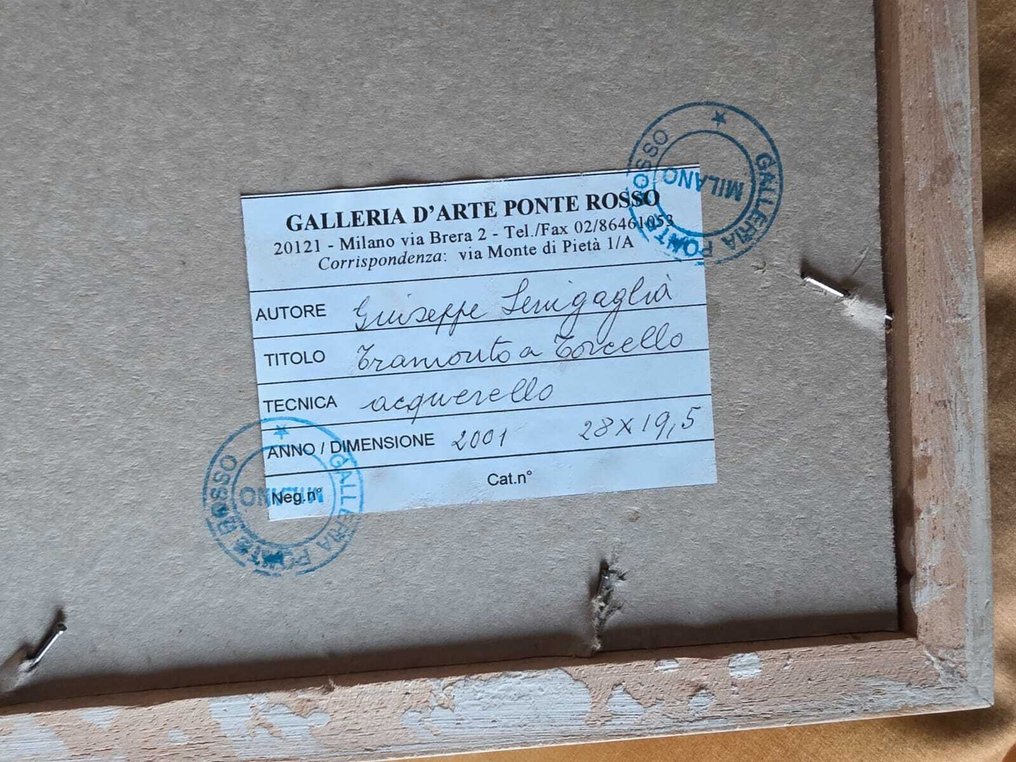 GALLERIA D'ARTE PONTE ROSSO
20121 - Milano via Brera 2 - Tel./Fax 02/86461053
Corrispondenza: via Monte di Pietà 1/A
AUTORE Giuseppe Senigaglia
TITOLO Tramonto a Torcello
TECNICA acquerello
ANNO / DIMENSIONE 2001 28x19,5
Cat.n°
Neg.n°
GALLERIA PONTE ROSSO
MILANO
GALLERIA PONTE ROSSO
MILANO